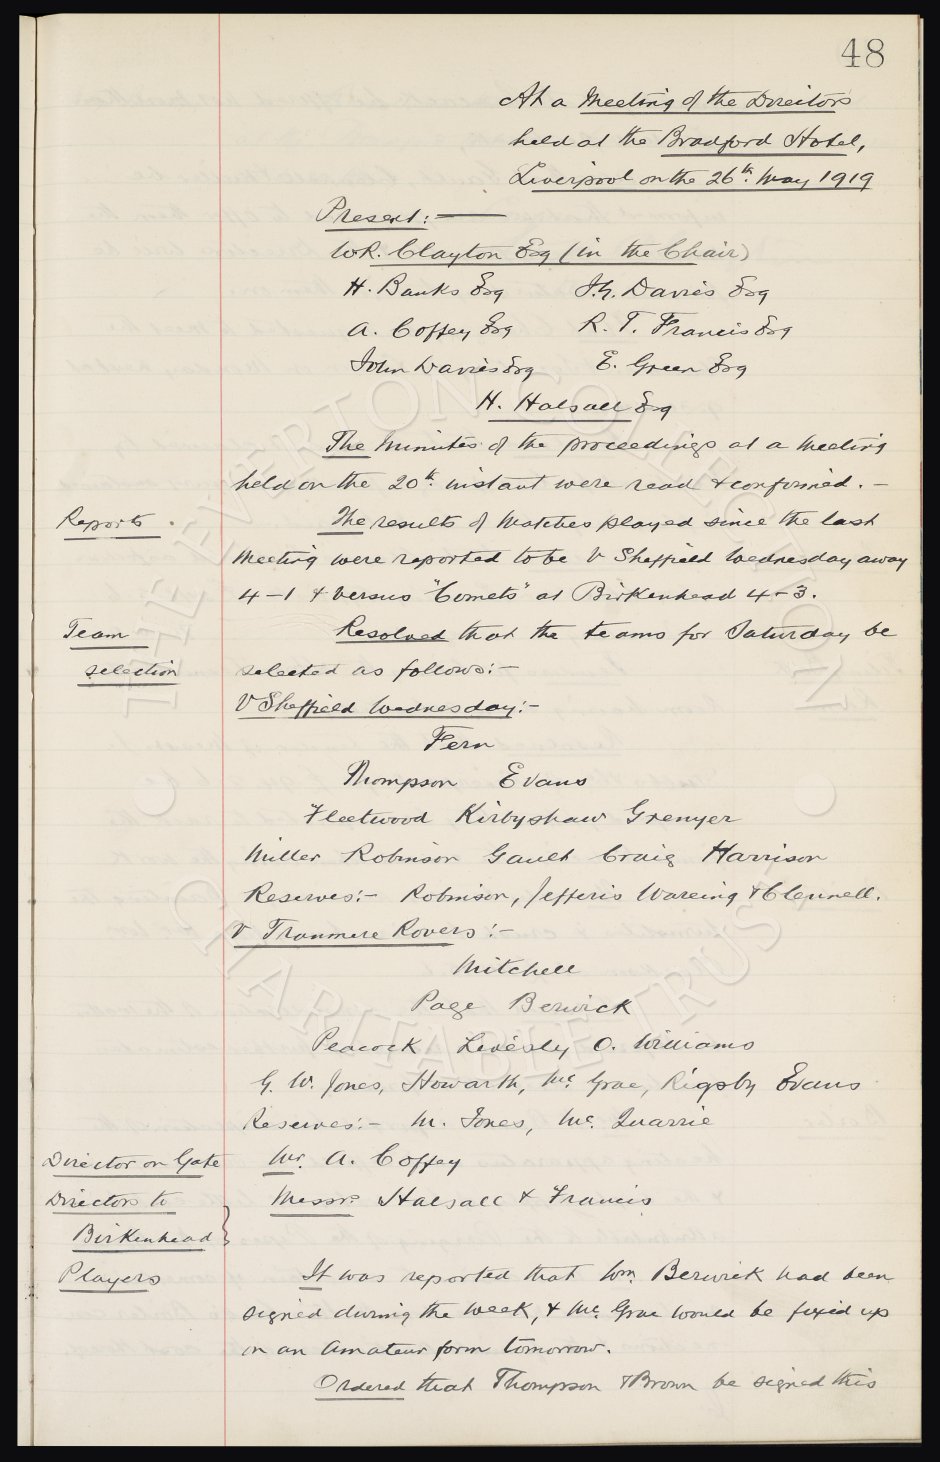 48
At a Meeting of the Directors
held at the Bradford Hotel,
Liverpool on the 26th. May 1919
Present:-
W.R. Clayton Esq (in the Chair)
H. Banks Esq J.G. Davies Esq
A. Coffey Esq R. T. Francis Esq
John Davies Esq E. Green Esq
H. Halsall Esq
The Minutes of the proceedings at a Meeting
held on the 20th. instant were read & confirmed. -
Reports. The results of Matches played since the last
Meeting were reported to be V Sheffield Wednesday away
4-1 & versus "Comets" at Birkenhead 4-3.
Team Resolved that the teams for Saturday be
selection selected as follows:-
V Sheffield Wednesday:-
Fern
Thompson Evans
Fleetwood Kirbyshaw Grenyer
Miller Robinson Gault Craig Harrison
Reserves:- Robinson, Jefferis Wareing & Clennell.
V Tranmere Rovers:-
Mitchell
Page Berwick
Peacock Livesley O. Williams
G. W. Jones, Howarth, Mc. Grae, Rigsby Evans
Reserves:- M. Jones, Mc. Quarrie
Director on Gate Mr. A. Coffey
Directors to Messrs Halsall & Francis
Birkenhead
Players It was reported that Wm. Berwick had been
signed during the week, & Mc. Grae would be fixed up
on an Amateur form tomorrow.
Ordered that Thompson & Brown be signed this
THE EVERTON COLLECTION
CHARITABLE TRUST